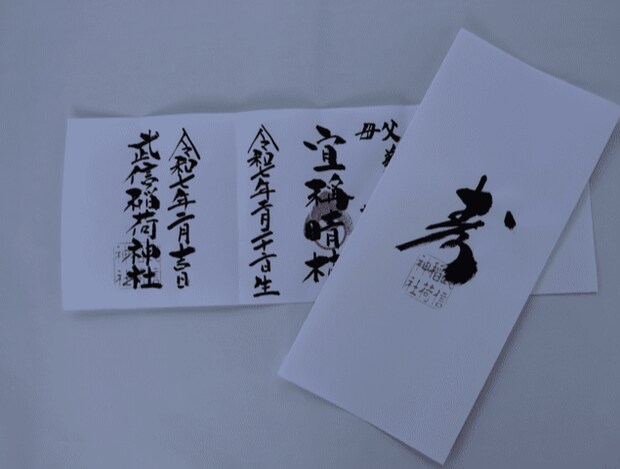 寿
武信
稲荷
神社
父
母
宜稱晴
令和七年
月二十
日生
令和七年二月吉日
武信稲荷神社